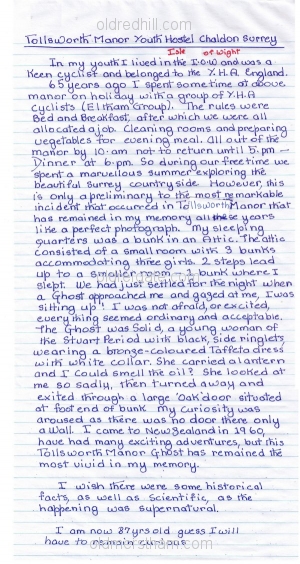 oldredhill.com
Tollsworth Manor Youth Hostel Chaldon Surrey
Isle of Wight
In my youth I lived in the I.O.W and was a
Keen cyclist and belonged to the Y.H.A England.
65 years ago I spent some time at above
manor on holiday with a group of Y.H.A
cyclists (Eltham Group). The rules were
Bed and Breakfast, after which we were all
allocated a job. Cleaning rooms and preparing
vegetables for evening meal. All out of the
manor by 10.am not to return until 5.pm —
Dinner at 6.pm. So during our free time we
spent a marvellous summer exploring the
beautiful Surrey countryside. However, this
is only a preliminary to the most remarkable
incident that occurred in Tollsworth Manor that
has remained in my memory all these years
like a perfect photograph. My sleeping
quarters was a bunk in an Attic. The attic
consisted of a small room with 3 bunks
accommodating three girls. 2 steps lead
up to a smaller room — 1 bunk where I
slept. We had just settled for the night when
a Ghost approached me and gazed at me, I was
sitting up! I was not afraid, or excited,
everything seemed ordinary and acceptable.
The Ghost was Solid, a young woman of
the Stuart Period with black, side ringlets
wearing a bronze-coloured Taffeta dress
with white collar. She carried a lantern
and I could smell the oil? She looked at
me so sadly, then turned away and
exited through a large 'oak' door situated
at foot end of bunk my curiosity was
aroused as there was no door there only
a wall. I came to New Zealand in 1960,
have had many exciting adventures, but this
Tollsworth Manor Ghost has remained the
most vivid in my memory.
I wish there were some historical
facts, as well as Scientific, as the
happening was supernatural.
I am now 87 yrs old guess I will
have to remain curious